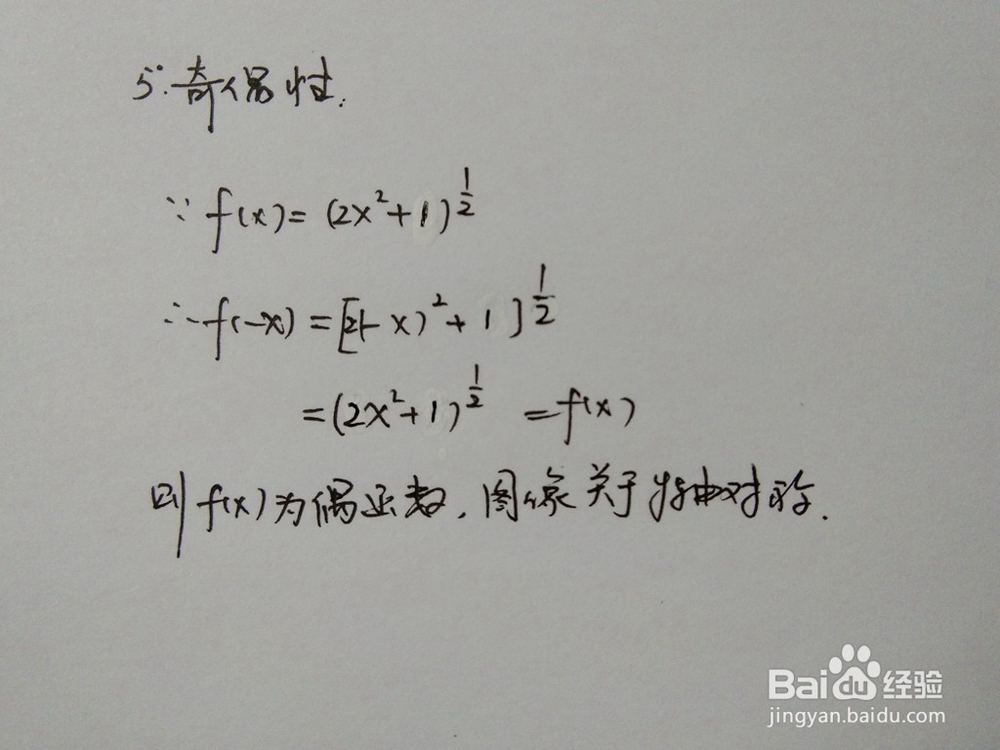 5°.奇偶性:
∵ f(x) = (2x²+1)^½
∴ f(-x) = [2(-x)²+1]^½
= (2x²+1)^½ = f(x)
则f(x)为偶函数,图像关于y轴对称.
Baidu经验
jingyan.baidu.com